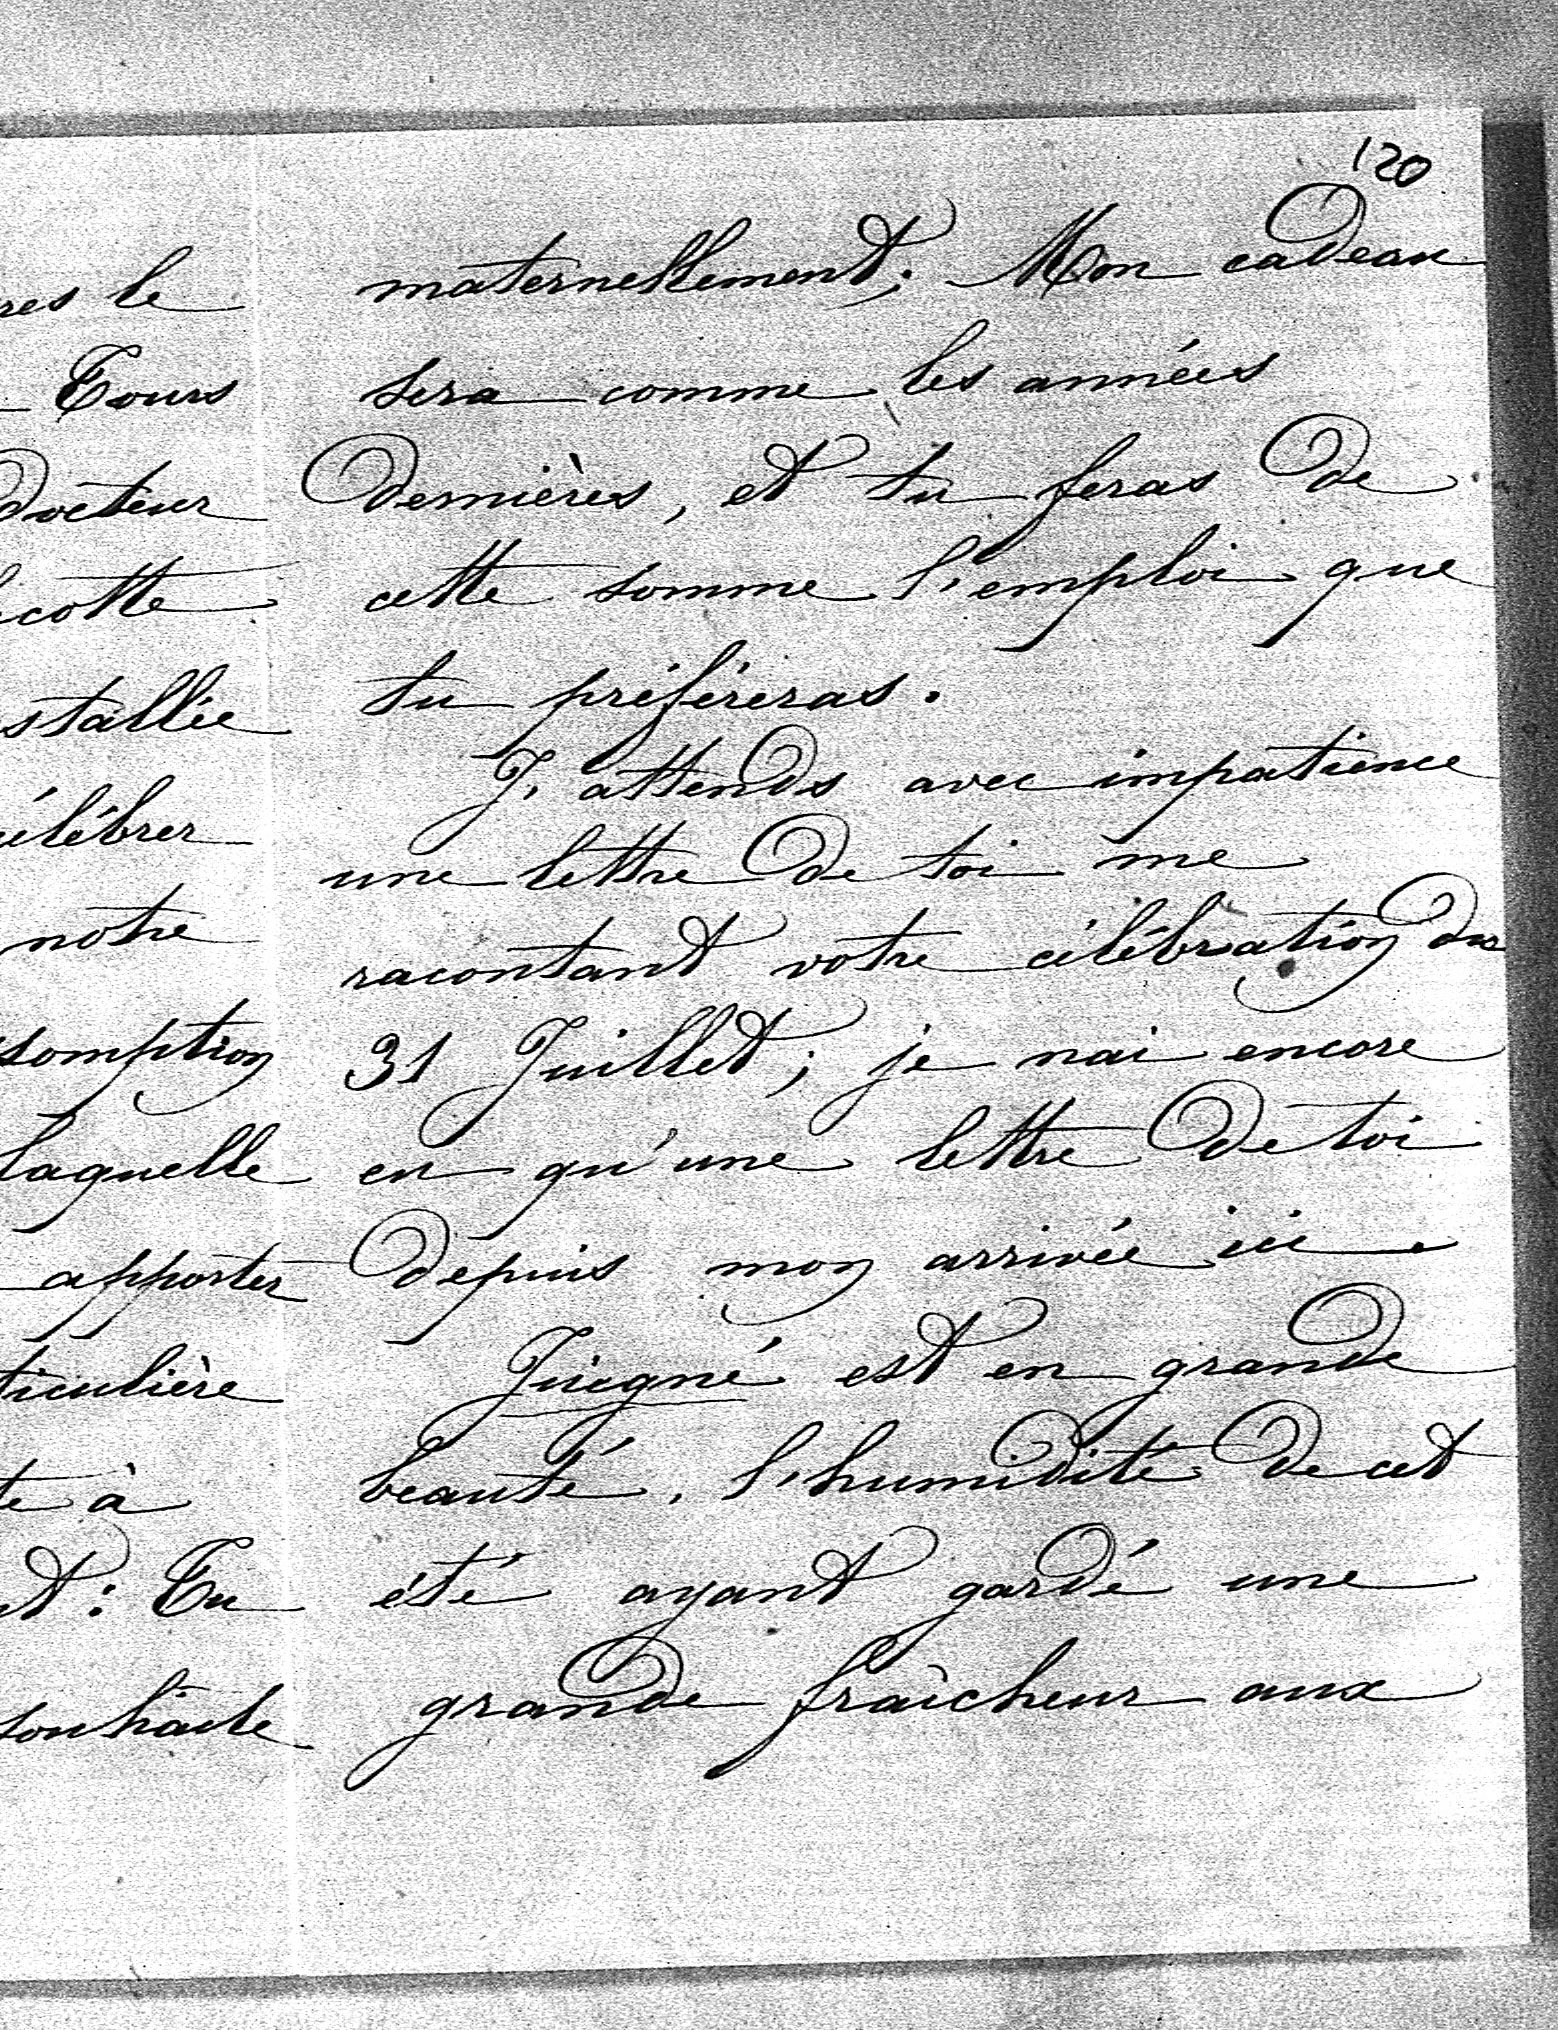 120
res le
Tours
Docteur
cotte
stallée
célébrer
notre
somption
laquelle
apporter
ticulière
te à
nt : Tu
souhaite
maternellement. Mon cadeau
sera comme les années
dernières, et tu feras de
cette somme l'emploi que
tu préféreras.
J'attends avec impatience
une lettre de toi me
racontant votre célébration du
31 Juillet ; je n'ai encore
eu qu'une lettre de toi
depuis mon arrivée ici.
Juigné est en grande
beauté, l'humidité de cet
été ayant gardé une
grande fraîcheur aux